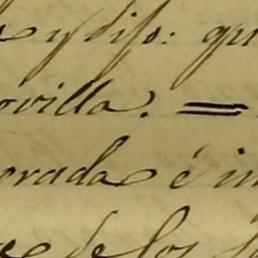 y dijo: qu
ovilla. =
orada é in
de los